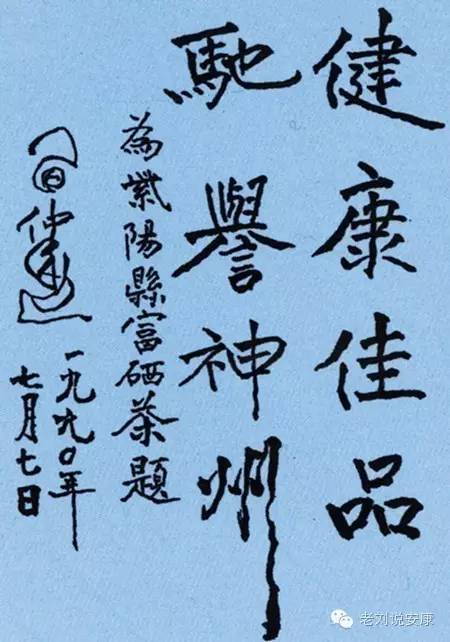 健康佳品
馳譽神州
為紫陽縣富硒茶題
一九九〇年
七月七日
老刘说安康